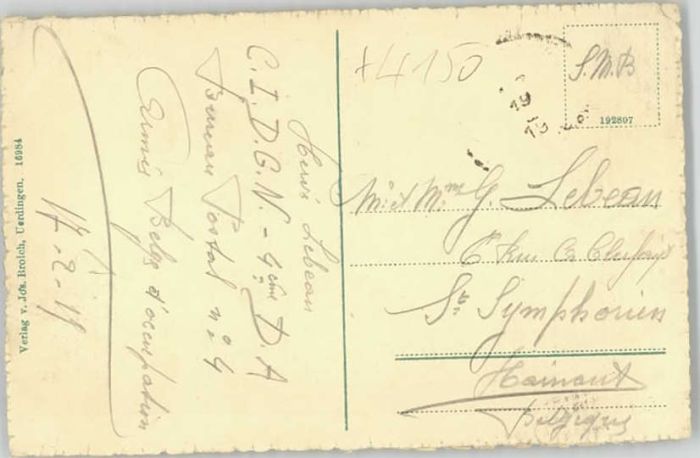 Verlag v. Jos. Broich, Uerdingen. 16984
17-2-19
Lebeau
C.I.D.G.N. - 4ème D.A
Bureau Postal n° 4
Armée Belge d'occupation
+4150
S.M.B
192897
19
M. et Mme G. Lebeau
St Symphorien
Hainaut
Belgique